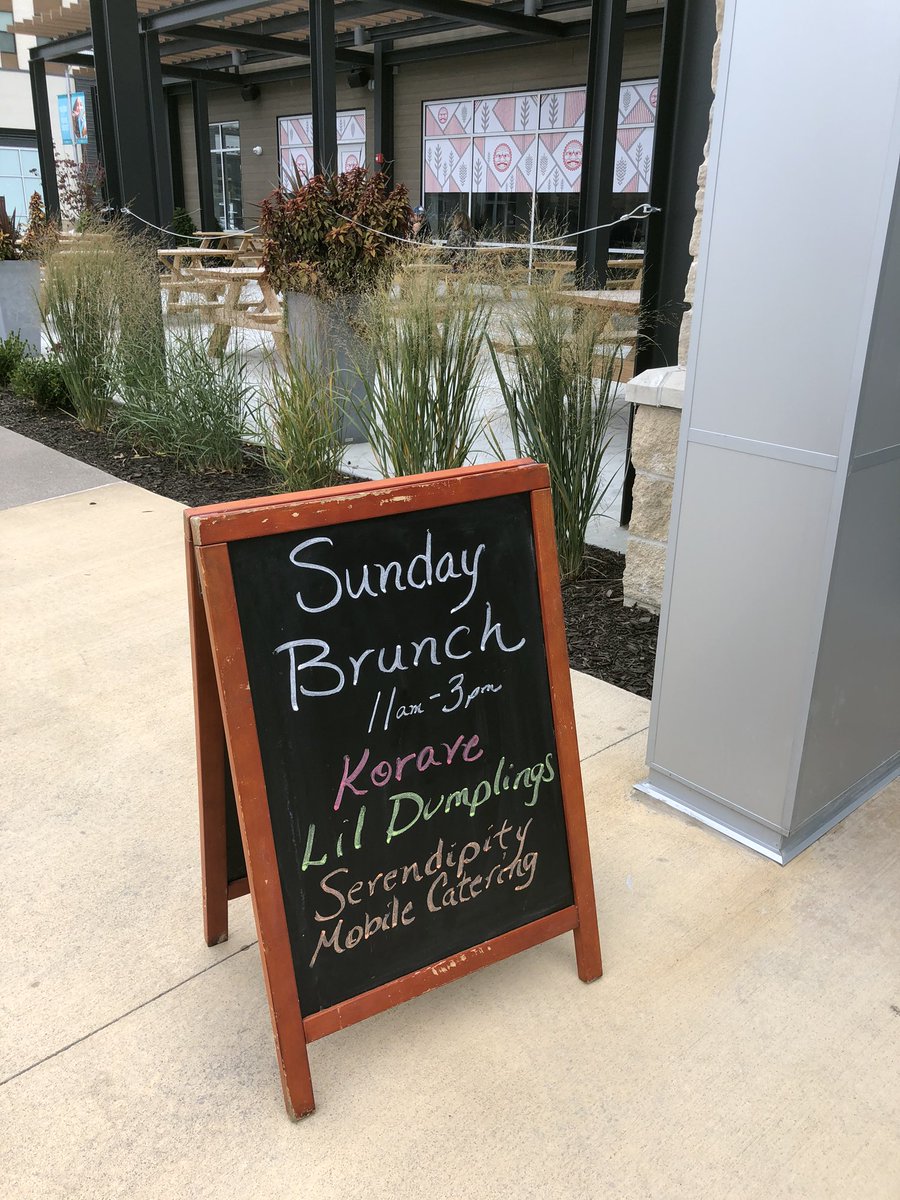 Sunday
Brunch
11am-3pm
Korave
Lil Dumplings
Serendipity
Mobile Catering